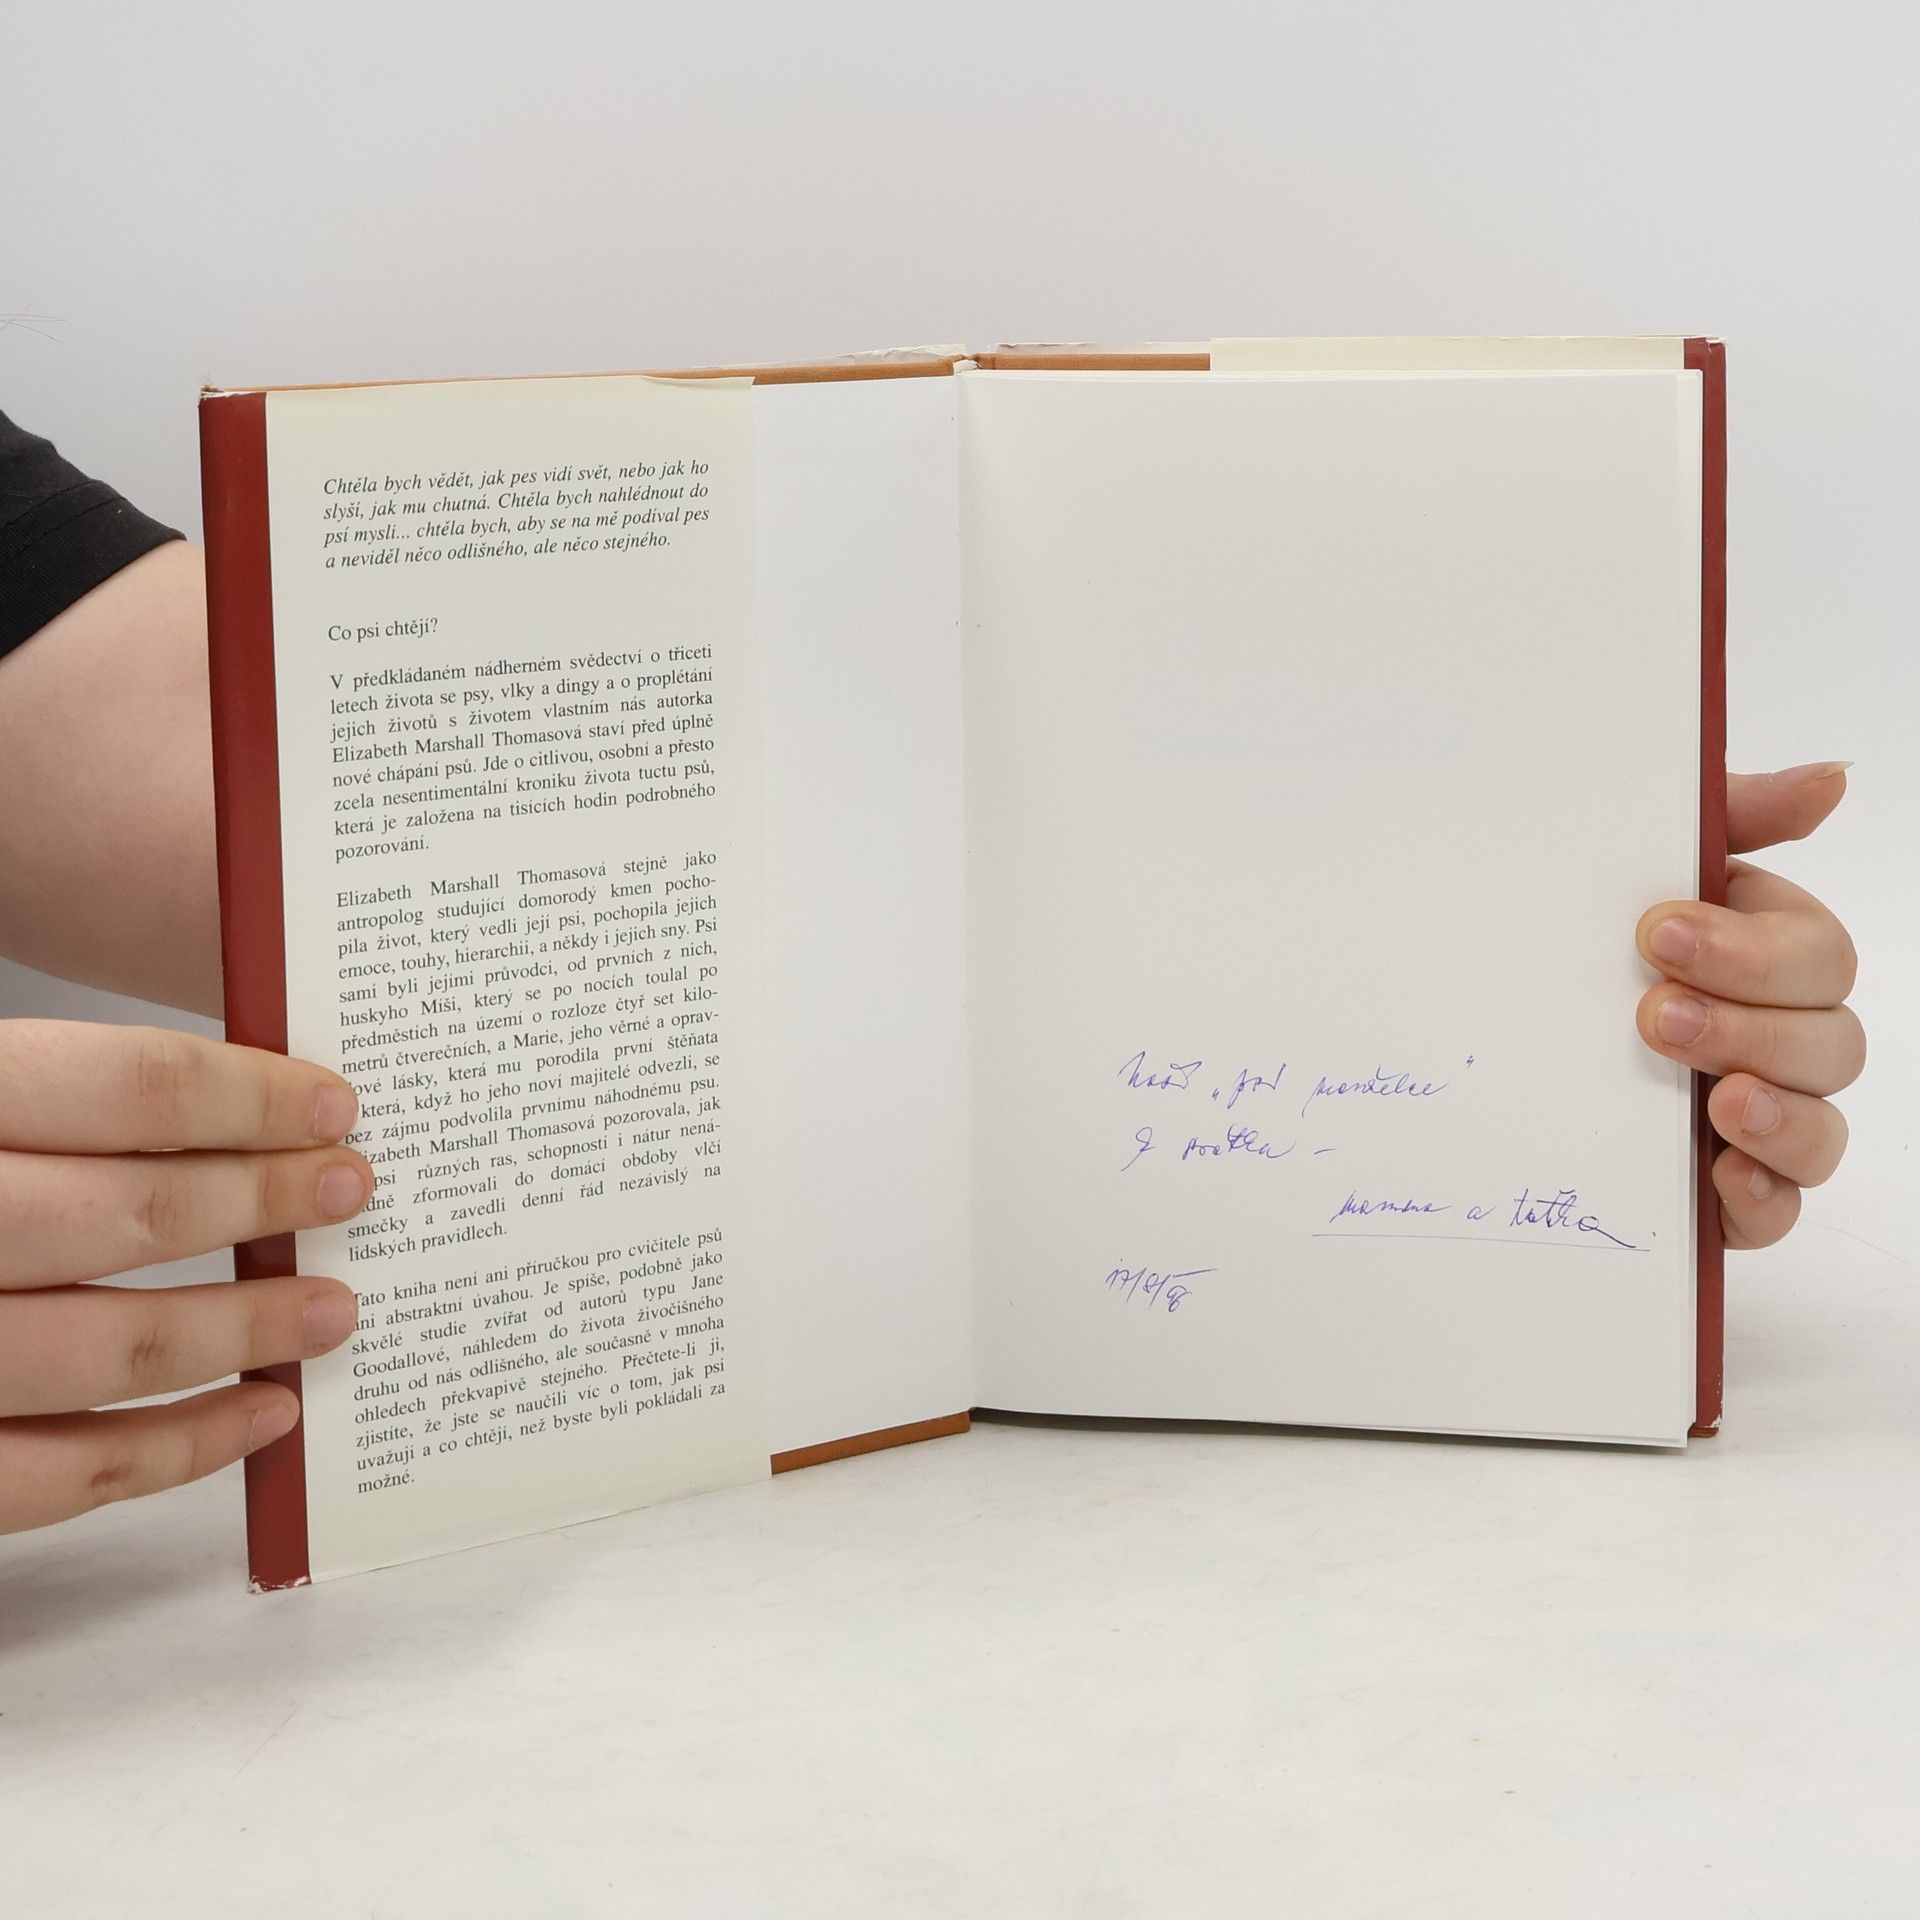 Chtěla bych vědět, jak pes vidí svět, nebo jak ho
slyší, jak mu chutná. Chtěla bych nahlédnout do
psí mysli... chtěla bych, aby se na mě podíval pes
a neviděl něco odlišného, ale něco stejného.
Co psi chtějí?
V předkládaném nádherném svědectví o třiceti
letech života se psy, vlky a dingy a o proplétání
jejich životů s životem vlastním nás autorka
Elizabeth Marshall Thomasová staví před úplně
nové chápání psů. Jde o citlivou, osobní a přesto
zcela nesentimentální kroniku života tuctu psů,
která je založena na tisících hodin podrobného
pozorování.
Elizabeth Marshall Thomasová stejně jako
antropolog studující domorodý kmen pocho-
pila život, který vedli její psi, pochopila jejich
emoce, touhy, hierarchii, a někdy i jejich sny. Psi
sami byli jejími průvodci, od prvních z nich,
huskyho Míši, který se po nocích toulal po
předměstích na území o rozloze čtyř set kilo-
metrů čtverečních, a Marie, jeho věrné a oprav-
ové lásky, která mu porodila první štěňata
která, když ho jeho noví majitelé odvezli, se
bez zájmu podvolila prvnímu náhodnému psu.
izabeth Marshall Thomasová pozorovala, jak
psi různých ras, schopností i nátur nená-
dně zformovali do domácí obdoby vlčí
smečky a zavedli denní řád nezávislý na
lidských pravidlech.
Tato kniha není ani příručkou pro cvičitele psů
ani abstraktní úvahou. Je spíše, podobně jako
skvělé studie zvířat od autorů typu Jane
Goodallové, náhledem do života živočišného
druhu od nás odlišného, ale současně v mnoha
ohledech překvapivě stejného. Přečtete-li ji,
zjistíte, že jste se naučili víc o tom, jak psi
uvažují a co chtějí, než byste byli pokládali za
možné.
manželce"
mamma a taťka.
17/8/96